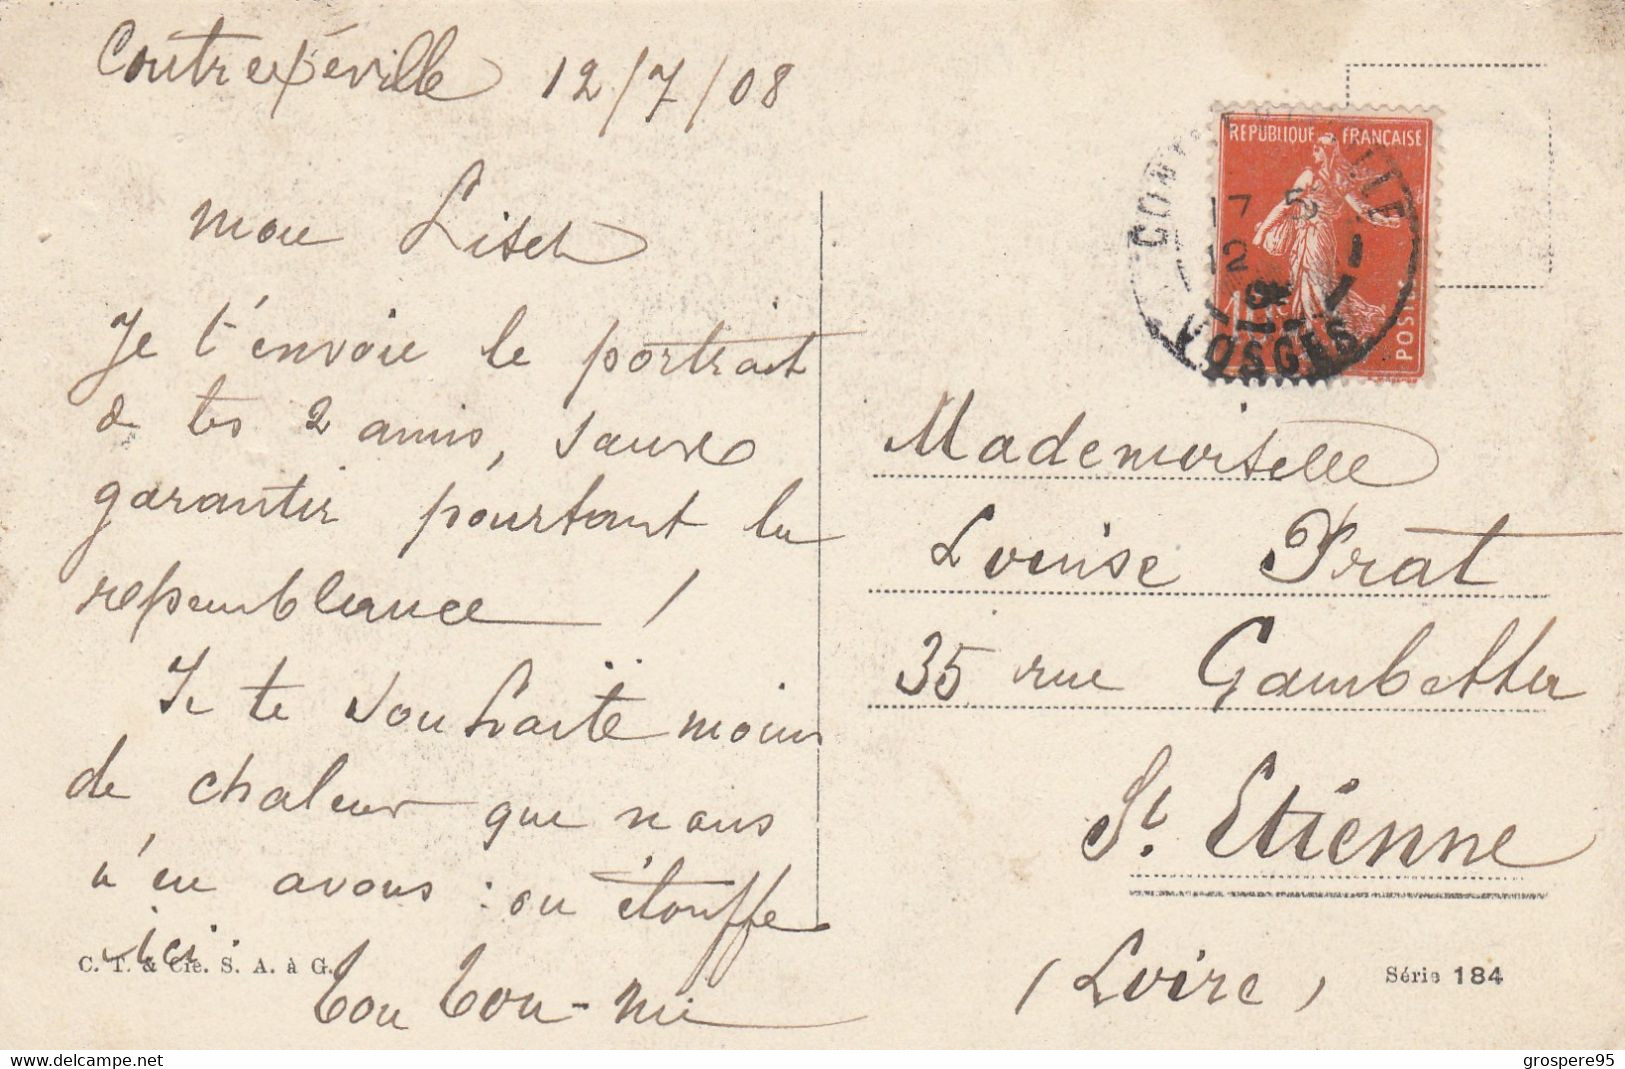 Contrexéville 12/7/08
mon Liset
Je t'envoie le portrait
de tes 2 amis, sans
garantir pourtant la
ressemblance !
Je te souhaite moins
de chaleur que nous
n'en avons : on étouffe
ici.
C. T. & Cie. S. A. à G.
Ton Ton-mi
REPUBLIQUE FRANÇAISE
POSTES
17 5
12
VOSGES
Mademoiselle
Louise Prat
35 rue Gambetta
St. Etienne
(Loire)
Série 184
www.delcampe.net
grospere95